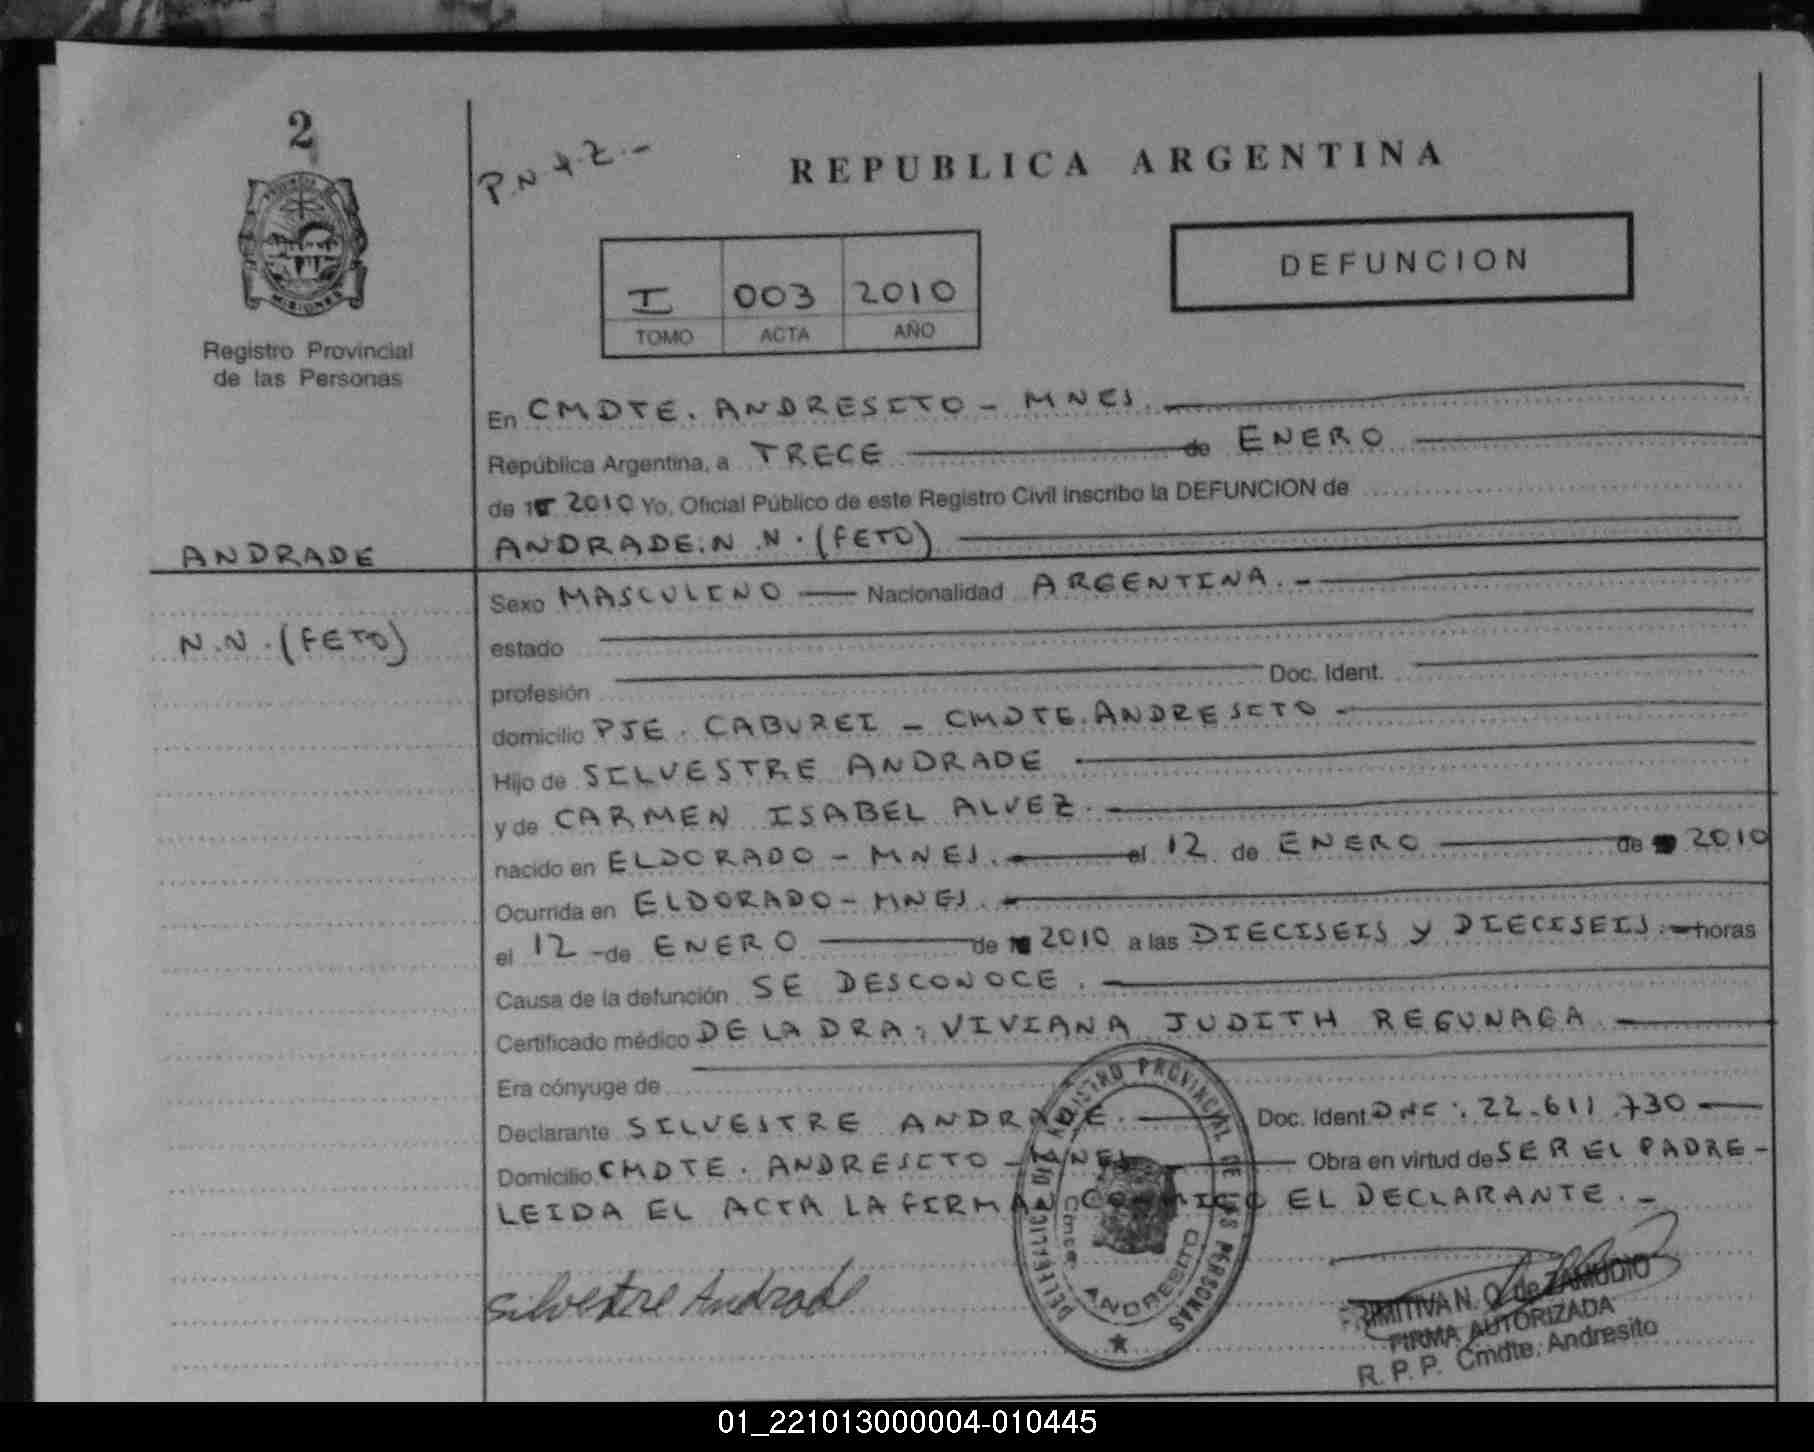 2
P.N.4.Z.-
REPUBLICA ARGENTINA
MISIONES
DEFUNCION
I 003 2010
TOMO ACTA AÑO
Registro Provincial
de las Personas
En CMDTE. ANDRESITO - MNES.
República Argentina, a TRECE de ENERO
de 2010 Yo, Oficial Público de este Registro Civil inscribo la DEFUNCION de
ANDRADE
ANDRADE: N.N. (FETO)
Sexo MASCULINO Nacionalidad ARGENTINA.-
N.N. (FETO)
estado
profesión Doc. Ident.
domicilio PJE. CABUREI - CMDTE. ANDRESITO -
Hijo de SILVESTRE ANDRADE
y de CARMEN ISABEL ALVEZ.
nacido en ELDORADO - MNES. el 12 de ENERO de 2010
Ocurrida en ELDORADO - MNES.
el 12 - de ENERO de 2010 a las DIECISEIS y DIECISEIS.- horas
Causa de la defunción SE DESCONOCE.
Certificado médico DE LA DRA: VIVIANA JUDITH REGUNAGA
Era cónyuge de
Declarante SILVESTRE ANDRADE. Doc. Ident. DNI: 22.611.730
Domicilio CMDTE. ANDRESITO - MNES Obra en virtud de SER EL PADRE -
LEIDA EL ACTA LA FIRMAN CONMIGO EL DECLARANTE.-
REGISTRO PROVINCIAL DE LAS PERSONAS
Cmte. ANDRESITO
Silvestre Andrade
PRIMITIVA N. Q. de ZAMUDIO
FIRMA AUTORIZADA
R. P. P. Cmdte. Andresito
01_221013000004-010445